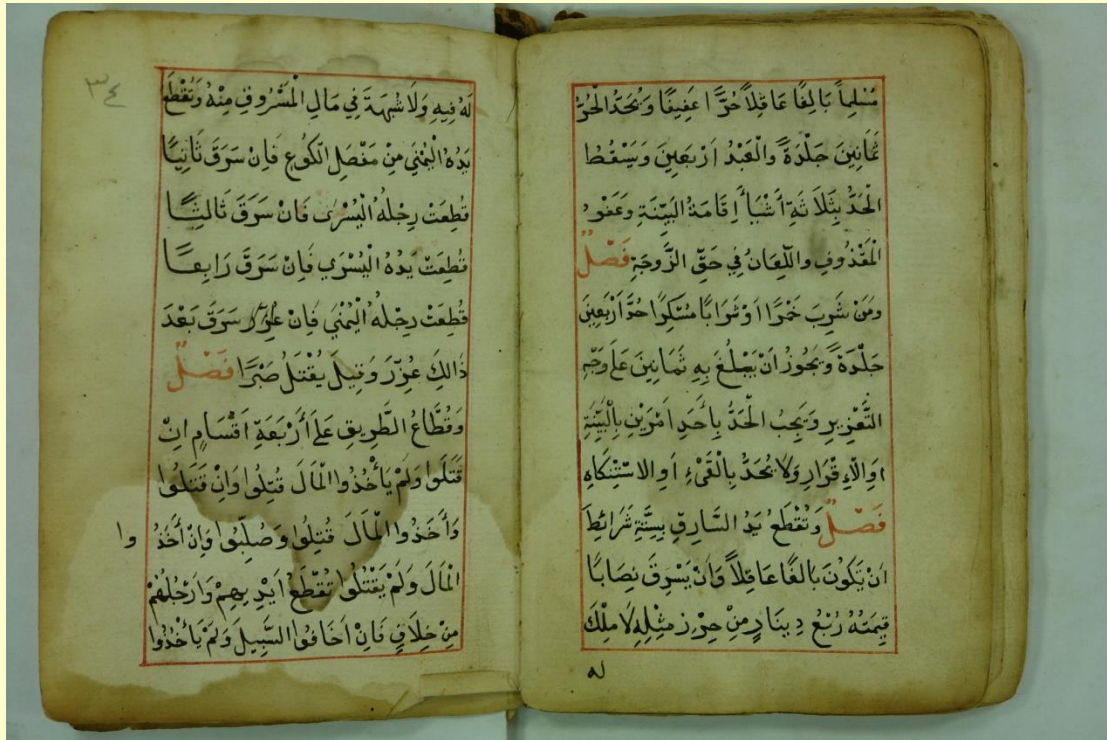 مُسْلِماً بَالِغًا عَاقِلاً حُرًّا عَفِيفًا وَيُحَدُّ الْحُرُّ
ثَمَانِينَ جَلْدَةً وَالْعَبْدُ اَرْبَعِينَ وَيَسْقُطُ
الْحَدُّ بِثَلَاثَةِ اَشْيَأَ اِقَامَةُ البَيِّنَةِ وَعَفْوُ
الْمَقْذُوفِ وَاللِّعَانُ فِي حَقِّ الزَّوجَةِ فَصْلٌ
وَمَنْ شَرِبَ خَمْرًا اَوْ شَرَابًا مُسْكِرًا حُدَّ اَرْبَعِينَ
جَلْدَةً وَيَجُوزُ اَنْ يَبْلُغَ بِهِ ثَمَانِينَ عَلَى وَجْهِ
التَّعْزِيرِ وَيَجِبُ الْحَدُّ بِاَحَدِ اَمْرَيْنِ بِالْبَيِّنَةِ
اَوِ الْاِقْرَارِ وَلَا يُحَدُّ بِالْقَيْءِ اَوِ الاسْتِنْكَاهِ
فَصْلٌ وَتُقْطَعُ يَدُ السَّارِقِ بِسِتَّةِ شَرَائِطَ
اَنْ يَكُونَ بَالغًا عَاقِلاً وَاَنْ يَسْرِقَ نِصَابًا
قِيمَتُهُ رُبْعُ دِينَارٍ مِنْ حِرْزِ مِثْلِهِ لَا مِلْكَ
له
٣٤
لَهُ فِيهِ وَلَا شُبْهَةَ فِي مَالِ الْمَسْرُوقِ مِنْهُ وَتُقْطَعُ
يَدُهُ الْيُمْنَي مِنْ مَفْصَلِ الْكُوعِ فَاِنْ سَرَقَ ثَانِيًا
قُطِعَتْ رِجْلُهُ الْيُسْرَى فَاِنْ سَرَقَ ثَالِثًا
قُطِعَتْ يَدُهُ الْيُسْرَي فَاِنْ سَرَقَ رَابِعًا
قُطِعَتْ رِجْلُهُ الْيُمْنَي فَاِنْ سَرَقَ بَعْدَ
ذَالِكَ عُزِّرَ وَقِيلَ يُقْتَلُ صَبْرًا فَصْلٌ
وَقُطَّاعُ الطَّرِيقِ عَلَى أَرْبَعَةِ اَقْسَامٍ اِنْ
قَتَلُوا وَلَمْ يَأْخُذُوا الْمَالَ قُتِلُوا وَاِنْ قَتَلُوا
وَأَخَذُوا الْمَالَ قُتِلُوا وَصُلِّبُوا وَاِنْ أَخَذُ وا
الْمَالَ وَلَمْ يَقْتُلُوا تُقْطَعُ اَيْدِيهِمْ وَاَرْجُلُهُمْ
مِنْ خِلَافٍ فَاِنْ اَخَافُوا السَّبِيلَ وَلَمْ يَأْخُذُوا